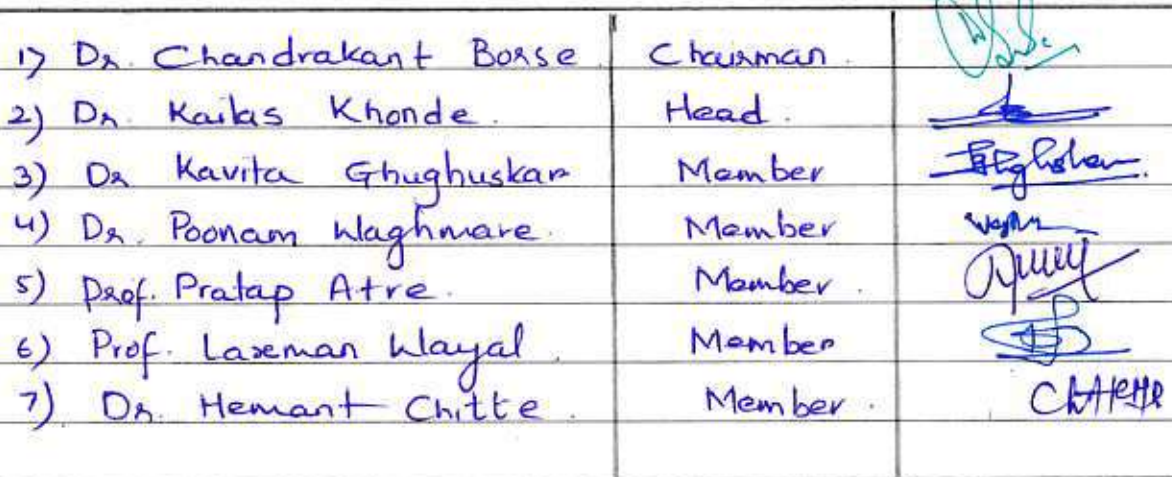 1) Dr. Chandrakant Borse Chairman.
2) Dr. Kailas Khonde. Head.
3) Dr Kavita Ghughuskar Member
4) Dr. Poonam Waghmare. Member
5) Prof. Pratap Atre. Member.
6) Prof. Laxman Wayal. Member
7) Dr. Hemant Chitte. Member.